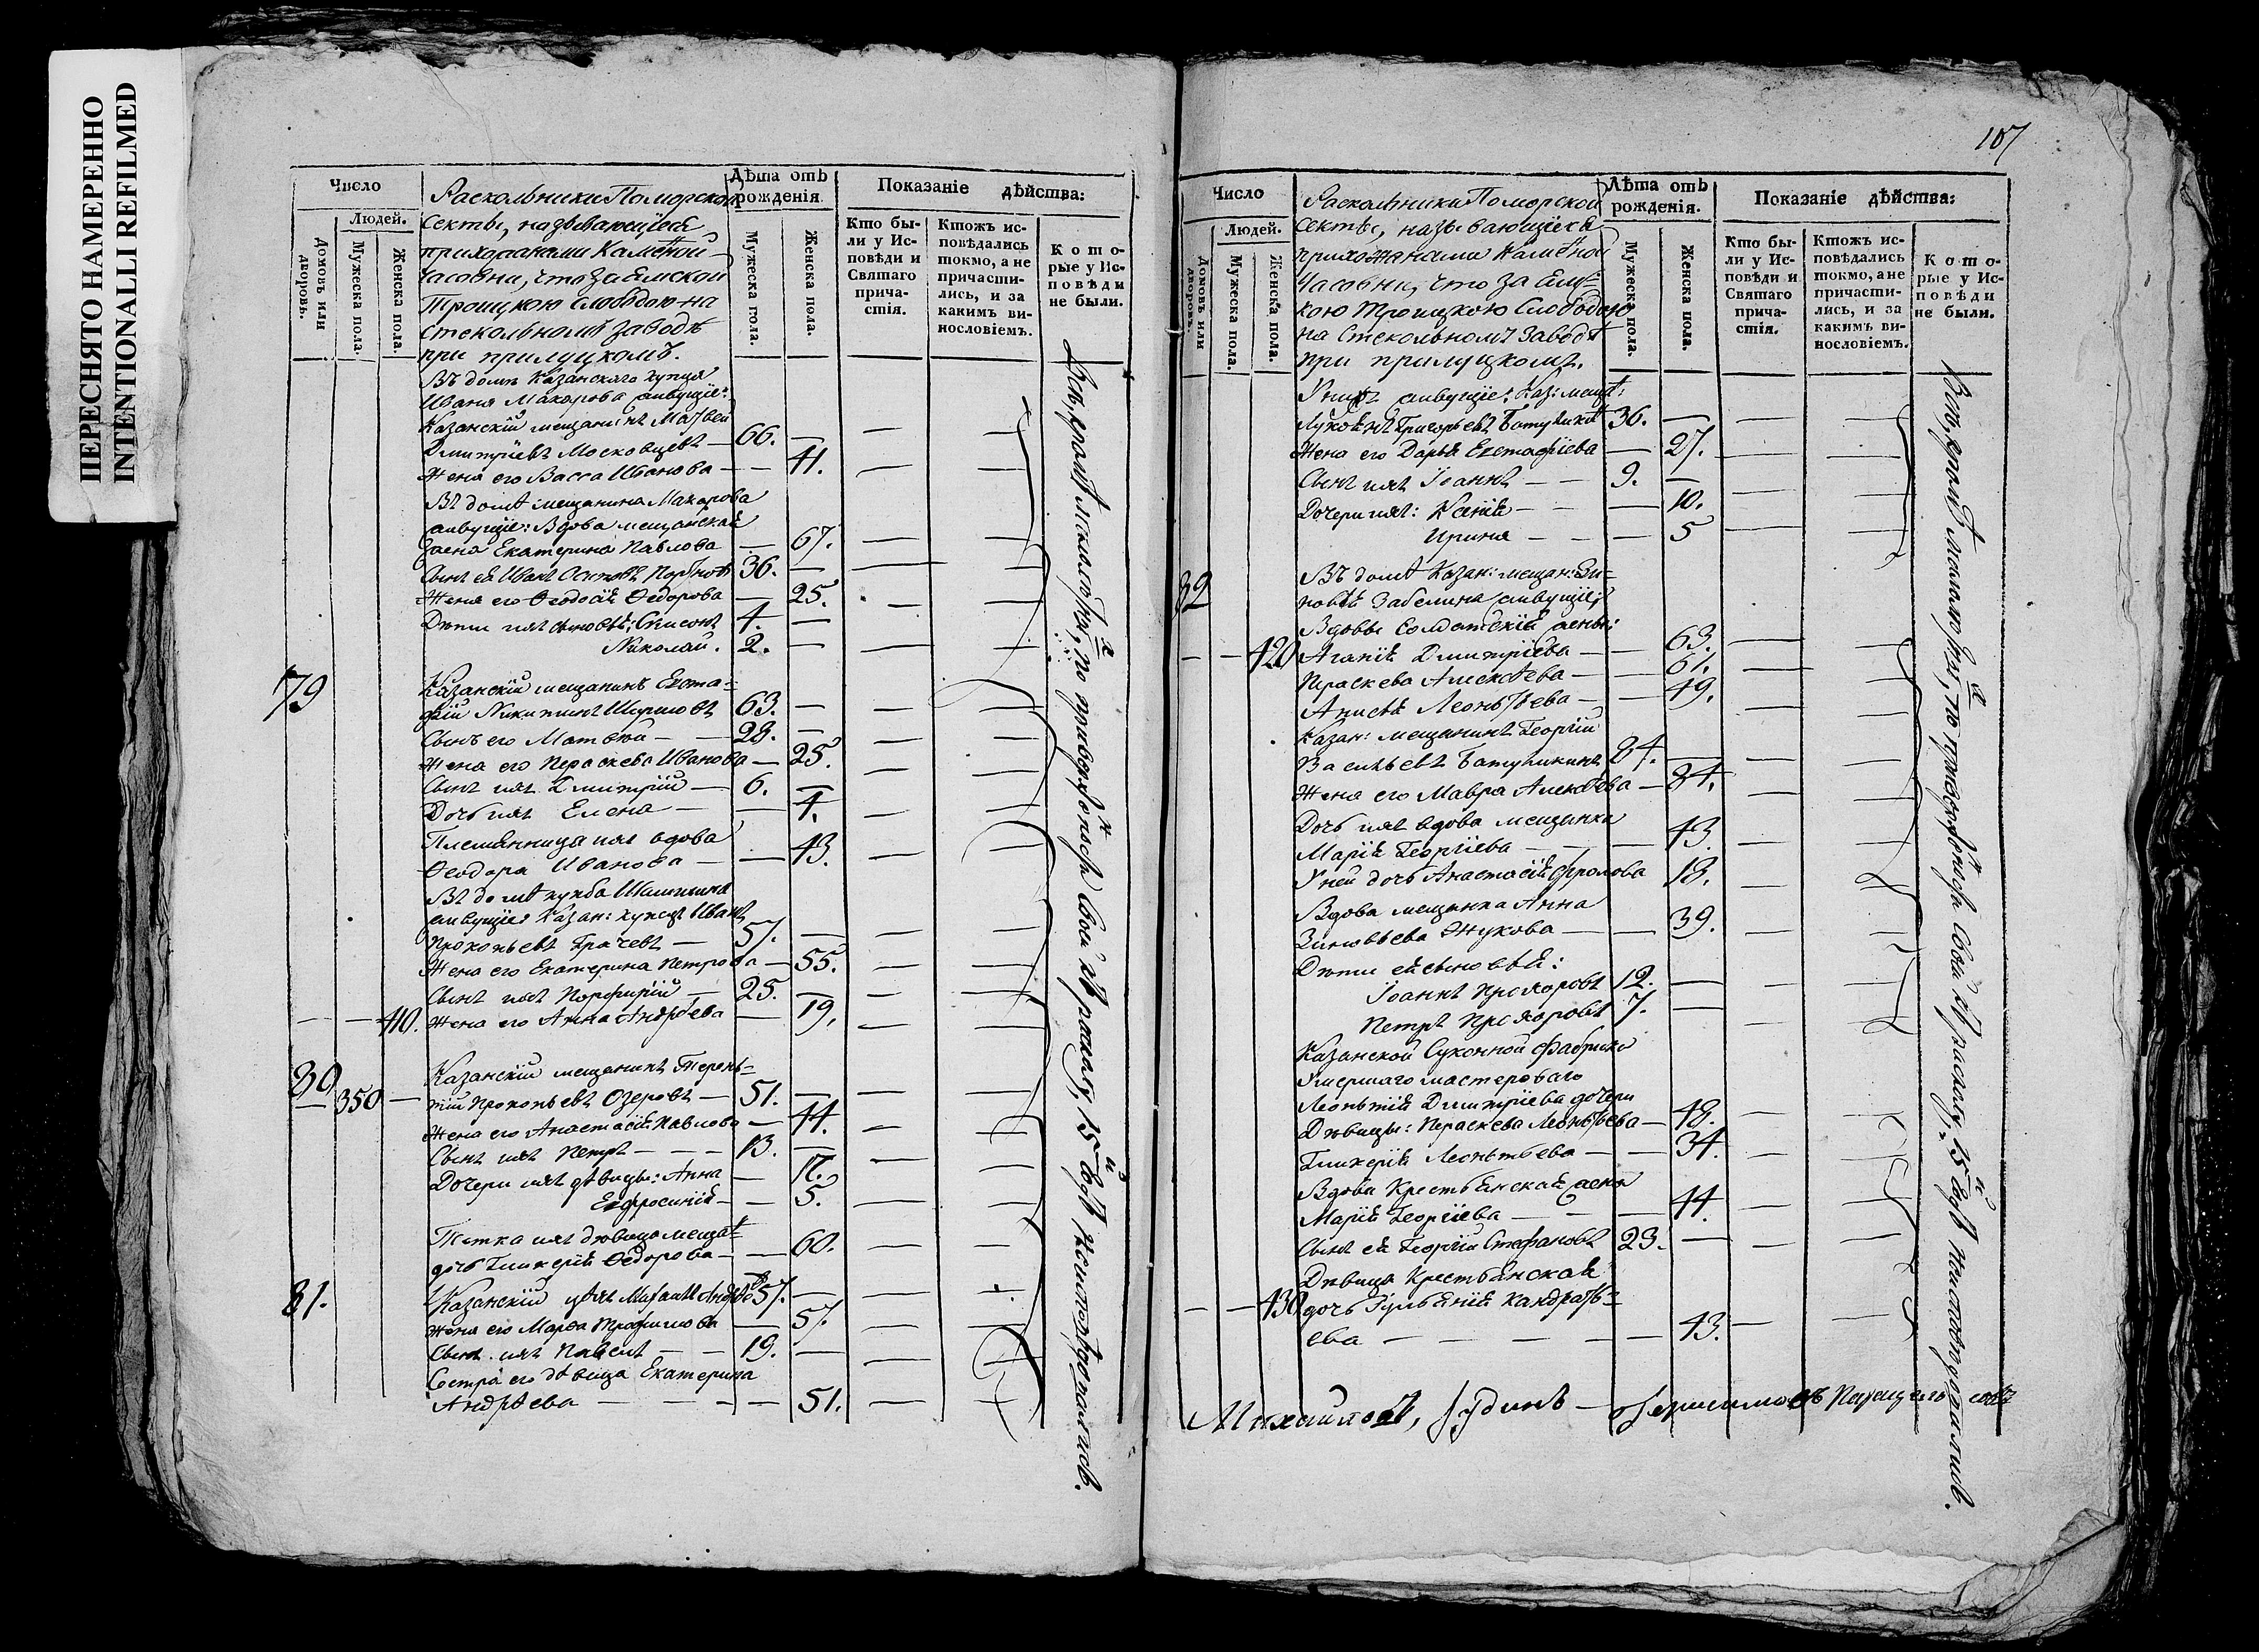 ПЕРЕСНЯТО НАМЕРЕННО
INTENTIONALLI REFILMED
Число
Людей.
Домовъ или дворовъ.
Мужеска пола.
Женска пола.
Раскольники Поморской
секты, называющіеся
прихожанами Каменной
часовни, что за Ямскою
Троицкою слободою на
стекольномъ заводѣ
при прилуцкомъ.
Лѣта отъ рожденія.
Мужеска пола.
Женска пола.
Показаніе дѣйства:
Кто бы-
ли у Ис-
повѣди и
Святаго
прича-
стія.
Ктожъ ис-
повѣдались
токмо, а не
причасти-
лись, и за
какимъ ви-
нословіемъ.
Кото-
рые у Ис-
повѣди
не были.
Въ домѣ Казанскаго купца
Ивана Макарова живущіе:
Казанскій мещанинъ Матвей
Дмитріевъ Московцевъ — 66. —
Жена его Васса Иванова — — 41.
Въ домѣ мещанина Макарова
живущіе: Вдова мещанская
жена Екатерина Павлова — 67.
Сынъ ея Иванъ Осиповъ 36. —
Жена его Ѳеодосія Ѳедорова — 25.
Дѣти ихъ сыновья: 4. —
Николай. 2. —
79
Казанскій мещанинъ Евста-
фій Никитинъ Ширшовъ 63. —
Сынъ его Матвѣй — — 28. —
Жена его Параскева Иванова — 25.
Сынъ ихъ Дмитрій — 6. —
Дочь ихъ Елена — — 4.
Племянница ихъ вдова
Ѳеодора Иванова — — 43.
Въ домѣ купца Шашина
живущіе Казан: купецъ Иванъ
Прокопьевъ Грачевъ — 57. —
Жена его Екатерина Петрова — 55.
Сынъ ихъ Порфирій — 25. —
— — 410. Жена его Анна Андреева — 19.
80
Казанскій мещанинъ Терень-
— 350 — тій Прокопьевъ Озеровъ — 51. —
Жена его Анастасія Павлова — 44.
Сынъ ихъ Петръ — — — 13. —
Дочери ихъ дѣвицы: Анна — 17.
Евфросинія — — 5.
Тетка ихъ дѣвица мещан:
дочь Гликерія Ѳедорова — — 60.
81. Казанскій цѣхъ Михаилъ Андрѣев 57. —
Жена его Марѳа Трофимова — 57.
Сынъ ихъ Павелъ — — 19. —
Сестра его дѣвица Екатерина
Андрѣева — — — — 51.
Всѣ, кромѣ малолѣтныхъ, по приверженности своей къ расколу, 15й годъ неисповѣдались.
107
Число
Людей.
Домовъ или дворовъ.
Мужеска пола.
Женска пола.
Раскольники Поморской
секты, называющіеся
прихожанами Каменной
Часовни, что за Ямс-
кою Троицкою Слободою
на Стекольномъ Заводѣ
при прилуцкомъ.
Лѣта отъ рожденія.
Мужеска пола.
Женска пола.
Показаніе дѣйства:
Кто бы-
ли у Ис-
повѣди и
Святаго
прича-
стія.
Ктожъ ис-
повѣдались
токмо, а не
причасти-
лись, и за
какимъ ви-
нословіемъ.
Кото-
рые у Ис-
повѣди
не были.
У нихъ живущіе: Каз: мещан:
Григорьевъ Батушкинъ 36. —
Жена его Дарья Евстафіева — 27.
Сынъ ихъ Іоаннъ — — 9. —
Дочери ихъ: Ксенія — — — 10.
Ирина — — — 5
82
Въ домѣ Казан: мещан: Зи-
новья Забелина живущіе;
Вдовы Солдатскія жены:
— — 420 Агапія Дмитріева — — 63.
Параскева Алексѣева — — 61.
Анисья Леонтьева — — 49.
Казан: мещанинъ Георгій
Васильевъ Батушкинъ 84. —
Жена его Мавра Алексѣева — 84.
Дочь ихъ вдова мещанка
Марія Георгіева — — — 43.
У ней дочь Анастасія Фролова 18.
Вдова мещанка Анна
Зиновьева Жукова — — 39.
Дѣти ея сыновья:
Іоаннъ Прохоровъ 12. —
Петръ Прохоровъ 7. —
Казанской Суконной Фабрики
Умершаго мастероваго
Леонтія Дмитріева дочери
Дѣвицы: Параскева Леонтьева — 48.
Гликерія Леонтьева — — 34.
Вдова Крестьянская жена
Марія Георгіева — — — 44.
Сынъ ея Георгій Стефановъ 23. —
Дѣвица Крестьянская
— — 430 дочь Ульянія Кандрать-
ева — — — — — 43.
Всѣ, кромѣ малолѣтныхъ, по приверженности своей къ расколу, 15й годъ неисповѣдались.
Михайловъ,